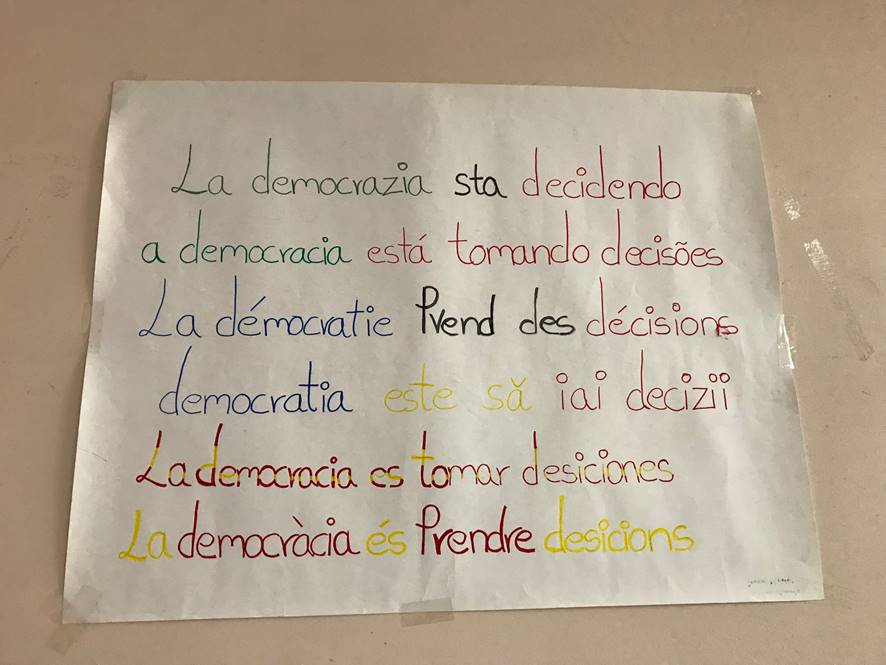 La democrazia sta decidendo
a democracia está tomando decisões
La démocratie Prend des décisions
democratia este să iai decizii
La democracia es tomar desiciones
La democràcia és Prendre desicions